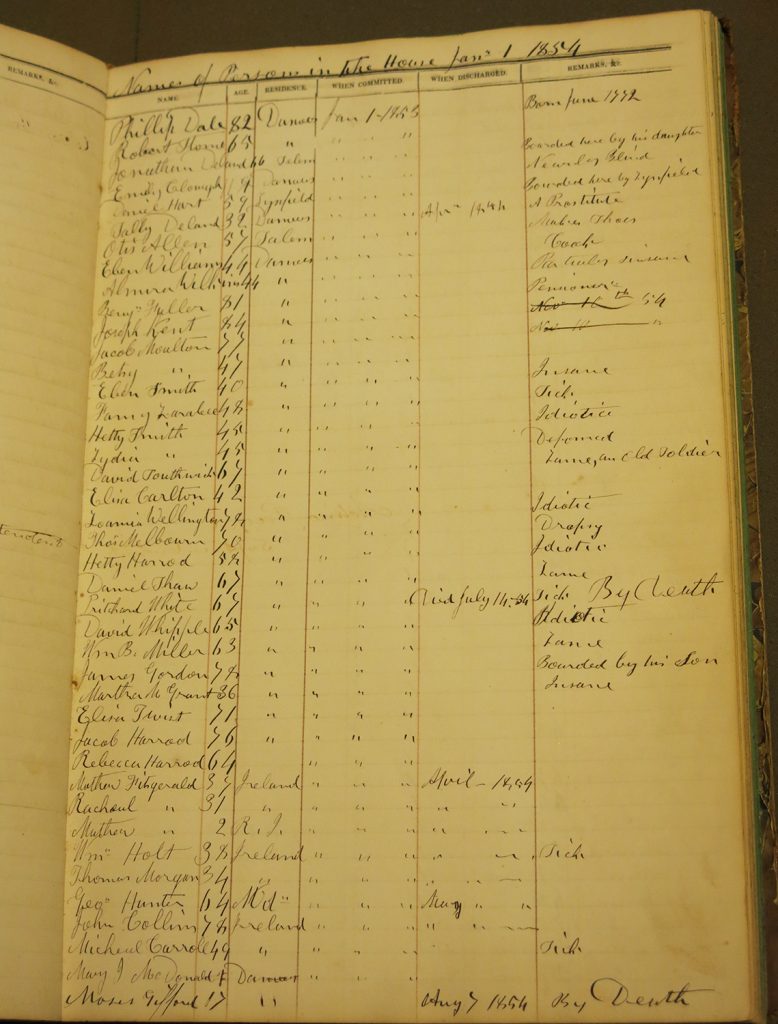 REMARKS, &c.
Names of Persons in the House Jany 1 1854
NAME. AGE. RESIDENCE. WHEN COMMITTED. WHEN DISCHARGED. REMARKS, &c.
Phillip Dale 82 Danvers Jan 1-1853 Born June 1772
Robert 65 " " " " Boarded here by his daughter
Jonathan Deland 66 Salem " " " Newrly Blind
Emily Clough 19 Danvers " " " Boarded here by Lynfield
Daniel Hart 59 Lynfield " " " Apr 1854 A Prostitute
Sally Deland 32 Danvers " " " Makes Shoes
Otis Allen 57 Salem " " " Cook
Eben Williams 44 Danvers " " " Insane
Almira Wilkins 44 " " " " Pensioner
Benjn Fuller 81 " " " " Nov 10th 54
Joseph Kent 84 " " " " Nov 10 "
Jacob Moulton 77 " " " "
Betsy " 47 " " " " Insane
Eben Smith 40 " " " " Sick
Fanny 48 " " " " Idiotic
Hetty Smith 45 " " " " Deformed
Lydia " 45 " " " " Lame, an Old Soldier
David Southwick 67 " " " "
Eliza Carlton 42 " " " " Idiotic
Wellington 78 " " " " Dropsy
Thos Melbourn 70 " " " " Idiotic
Hetty Harrod 58 " " " "
Daniel Shaw 67 " " " " Lame
Pritchard White 67 " " " " Died July 14-54 Sick By Death
David Whipple 65 " " " " Idiotic
Wm B. Miller 63 " " " " Lame
James Gordon 78 " " " " Boarded by his Son
Martha M Grant 36 " " " " Insane
Eliza Twist 71 " " " "
Jacob Harrod 76 " " " "
Rebecca Harrod 64 " " "
Mathew Fitzgerald 37 Ireland " " " April - 1854
Rachael " 31 " " " " " "
Mathew " 2 R.I. " " " " "
Wm Holt 38 Ireland " " " " " Sick
Thomas Morgan 34 " " " " " "
Geo Hunter 64 Md " " " May " "
John Collins 78 Ireland " " " "
Micheal Carroll 49 " " " " Sick
Mary J McDonald Danvers " " "
Moses Gifford 17 " " " " Aug 7 1854 By Death